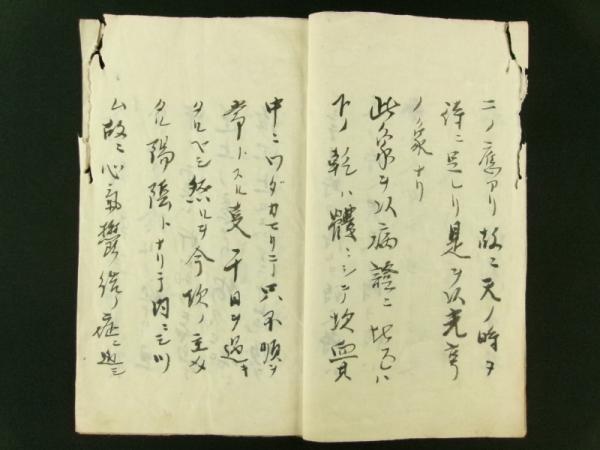 二ノ應アリ故ニ天ノ時ヲ
待ニ足レリ是ヲ以光亨
ノ象ナリ
此象ヲ以病證ニ比
下ノ乾ハ體ニシテ坎血其
中ニワダカセリ只不順ヲ
常トスル 干日ヲ過キ
タルベシ然ルヲ今坎ノ主
タル陽陰トナリテ内ニ
ム故ニ心氣鬱結ノ症ニ